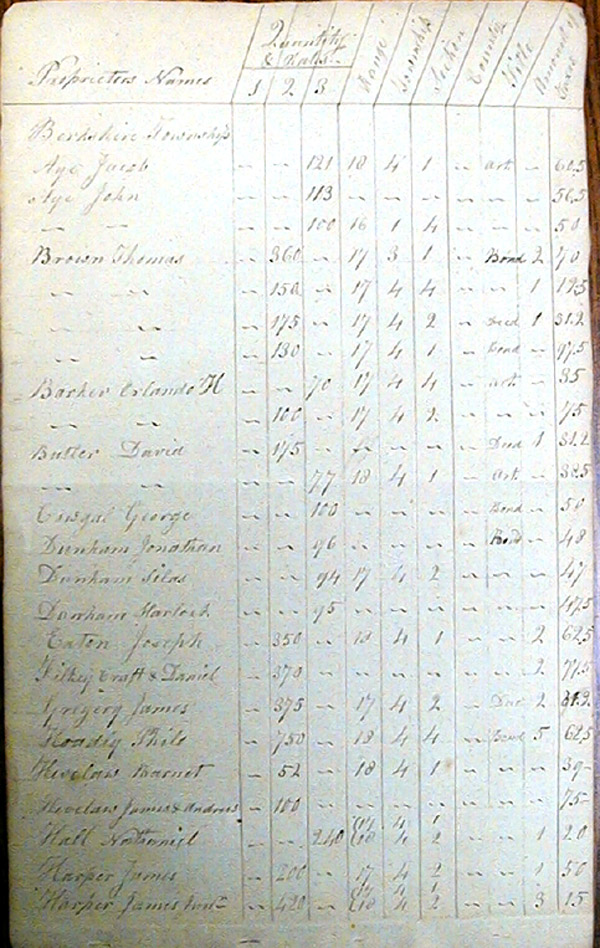 Proprietors Names Quantity & Rates 1 2 3 Range Township Section County Title Amount of Taxes
Berkshire Township
Aye Jacob " " 121 18 4 1 " art. " 60.5
Aye John " " 113 56.5
" " " " 100 16 1 4 " " " 50
Brown Thomas " 360 " 17 3 1 " Bond 2 70
" " " 150 " 17 4 4 " " 1 12.5
" " " 175 " 17 4 2 " Deed 1 31.2
" " " 130 " 17 4 1 " Bond " 97.5
Barker Orlando H " " 70 17 4 4 " art. " 35
" " " 100 " 17 4 2 " " " 75
Butler David " 175 " " " " Deed 1 31.2
" " " " 77 18 4 1 " art. " 38.5
George " " 100 " " " " Bond " 50
Dunham Jonathan " " 96 " " " " Bond " 48
Dunham Silas " " 94 17 4 2 " " " 47
Dunham " " 95 " " " " " " 47.5
Eaton Joseph " 350 " 18 4 1 " " 2 62.5
Craft & Daniel " 370 " " " " " " 2 77.5
Gregory James " 375 " 17 4 2 " 2
Hoadly Phile " 750 " 18 4 4 " 5 62.5
Hevelaw Barnet " 52 " 18 4 1 " " " 39
Hevelaw James & Andrew " 100 " " " " " " " 75
Hall Nathaniel " " 240 {17 4 1 {18 4 2 " " 1 20
Harper James " 200 " 17 4 2 " " 1 50
Harper James " 420 " {17 4 1 {18 4 2 " " 3 15